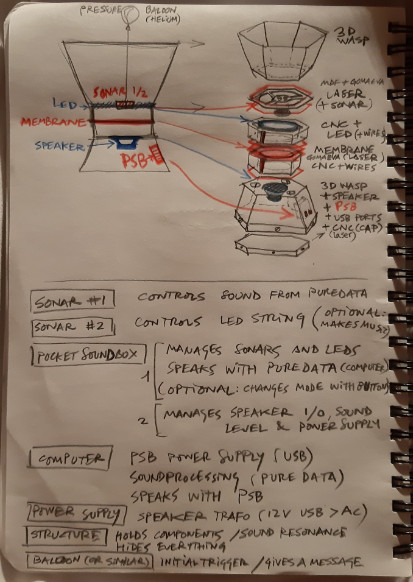 PRESSURE
BALOON
(HELIUM)
3D
WASP
SONAR 1/2
LED
MEMBRANE
SPEAKER
PSB
LASER
(+ SONAR)
CNC +
LED (+WIRES)
MEMBRANE
(LASER)
CNC + WIRES
3D WASP
+ SPEAKER
+ PSB
+ USB PORTS
+ CNC (CAP)
(LASER)
SONAR #1 CONTROLS SOUND FROM PUREDATA
SONAR #2 CONTROLS LED STRING (OPTIONAL:
POCKET SOUNDBOX
1 MANAGES SONARS AND LEDS
SPEAKS WITH PUREDATA (COMPUTER)
(OPTIONAL: CHANGES MODE WITH BUTTON)
2 MANAGES SPEAKER I/O, SOUND
LEVEL & POWER SUPPLY
COMPUTER PSB POWER SUPPLY (USB)
SOUNDPROCESSING (PURE DATA)
SPEAKS WITH PSB
POWER SUPPLY SPEAKER TRAFO (12V USB > AC)
STRUCTURE HOLDS COMPONENTS / SOUND RESONANCE
HIDES EVERYTHING
BALOON (OR SIMILAR) INITIAL TRIGGER / GIVES A MESSAGE